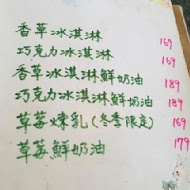 香草冰淇淋 169
巧克力冰淇淋 169
香草冰淇淋鮮奶油 189
巧克力冰淇淋鮮奶油 189
草莓煉乳(冬季限定) 169
草莓鮮奶油 179